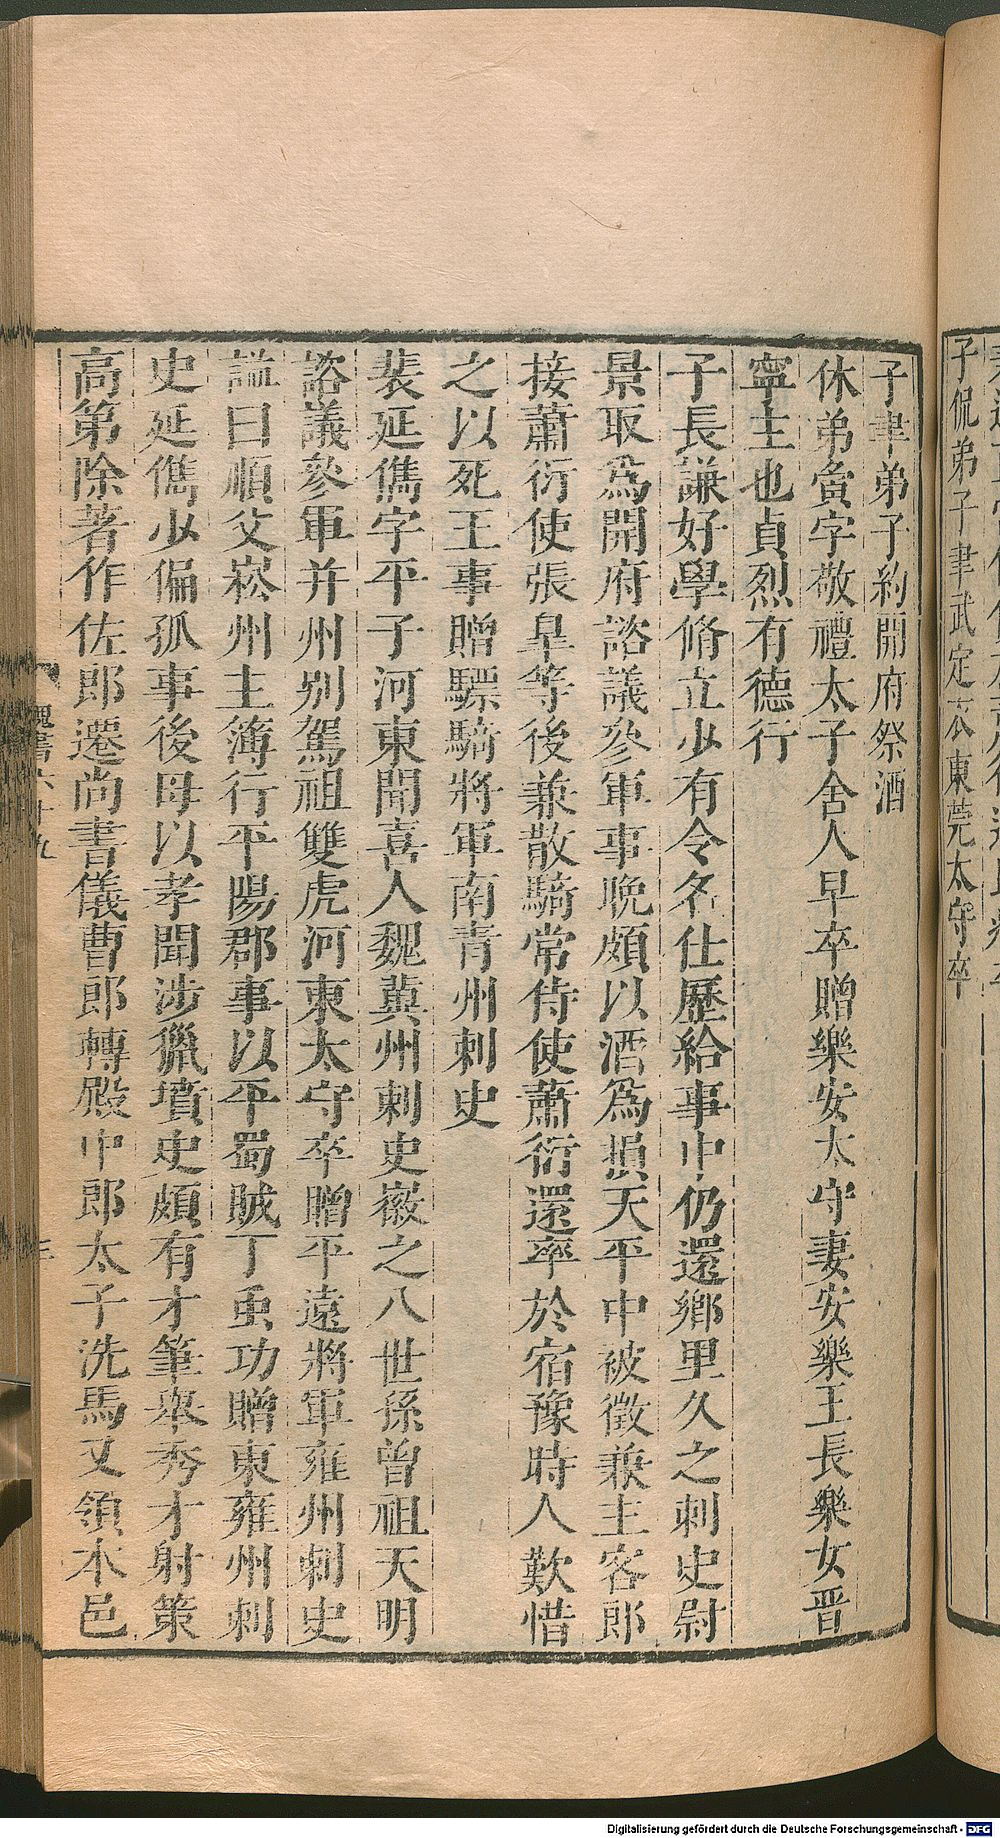 子侃弟子聿武定末東莞太守卒
子聿弟子約開府祭酒
休弟夤字敬禮太子舍人早卒贈樂安太守妻安樂王長樂女晉
寧主也貞烈有德行
子長謙好學脩立少有令名仕歷給事中仍還鄉里久之刺史尉
景取為開府諮議參軍事晚頗以酒為損天平中被徵兼主客郎
接蕭衍使張皐等後兼散騎常侍使蕭衍還卒於宿豫時人歎惜
之以死王事贈驃騎將軍南青州刺史
裴延儁字平子河東聞喜人魏冀州刺史徽之八世孫曾祖天明
諮議參軍并州別駕祖雙虎河東太守卒贈平遠將軍雍州刺史
謚曰順父崧州主簿行平陽郡事以平蜀賊丁虫功贈東雍州刺
史延儁少偏孤事後母以孝聞涉獵墳史頗有才筆舉秀才射策
高第除著作佐郎遷尚書儀曹郎轉殿中郎太子洗馬又領本邑
魏書六十九
三
Digitalisierung gefördert durch die Deutsche Forschungsgemeinschaft - DFG